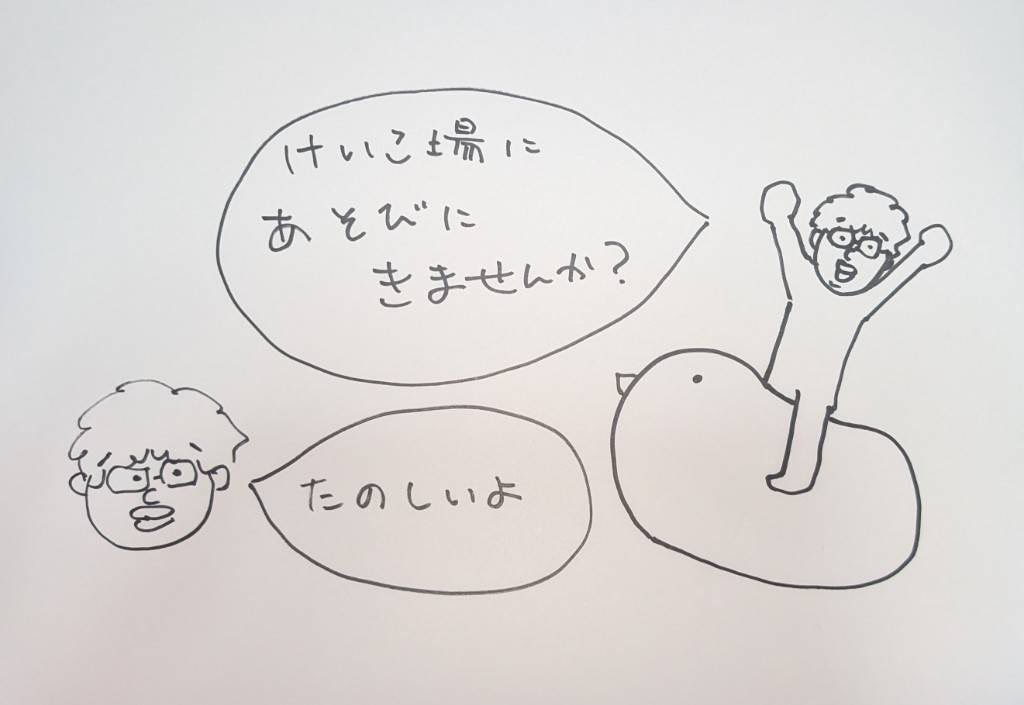 けいこ場に
あそびに
きませんか?
たのしいよ